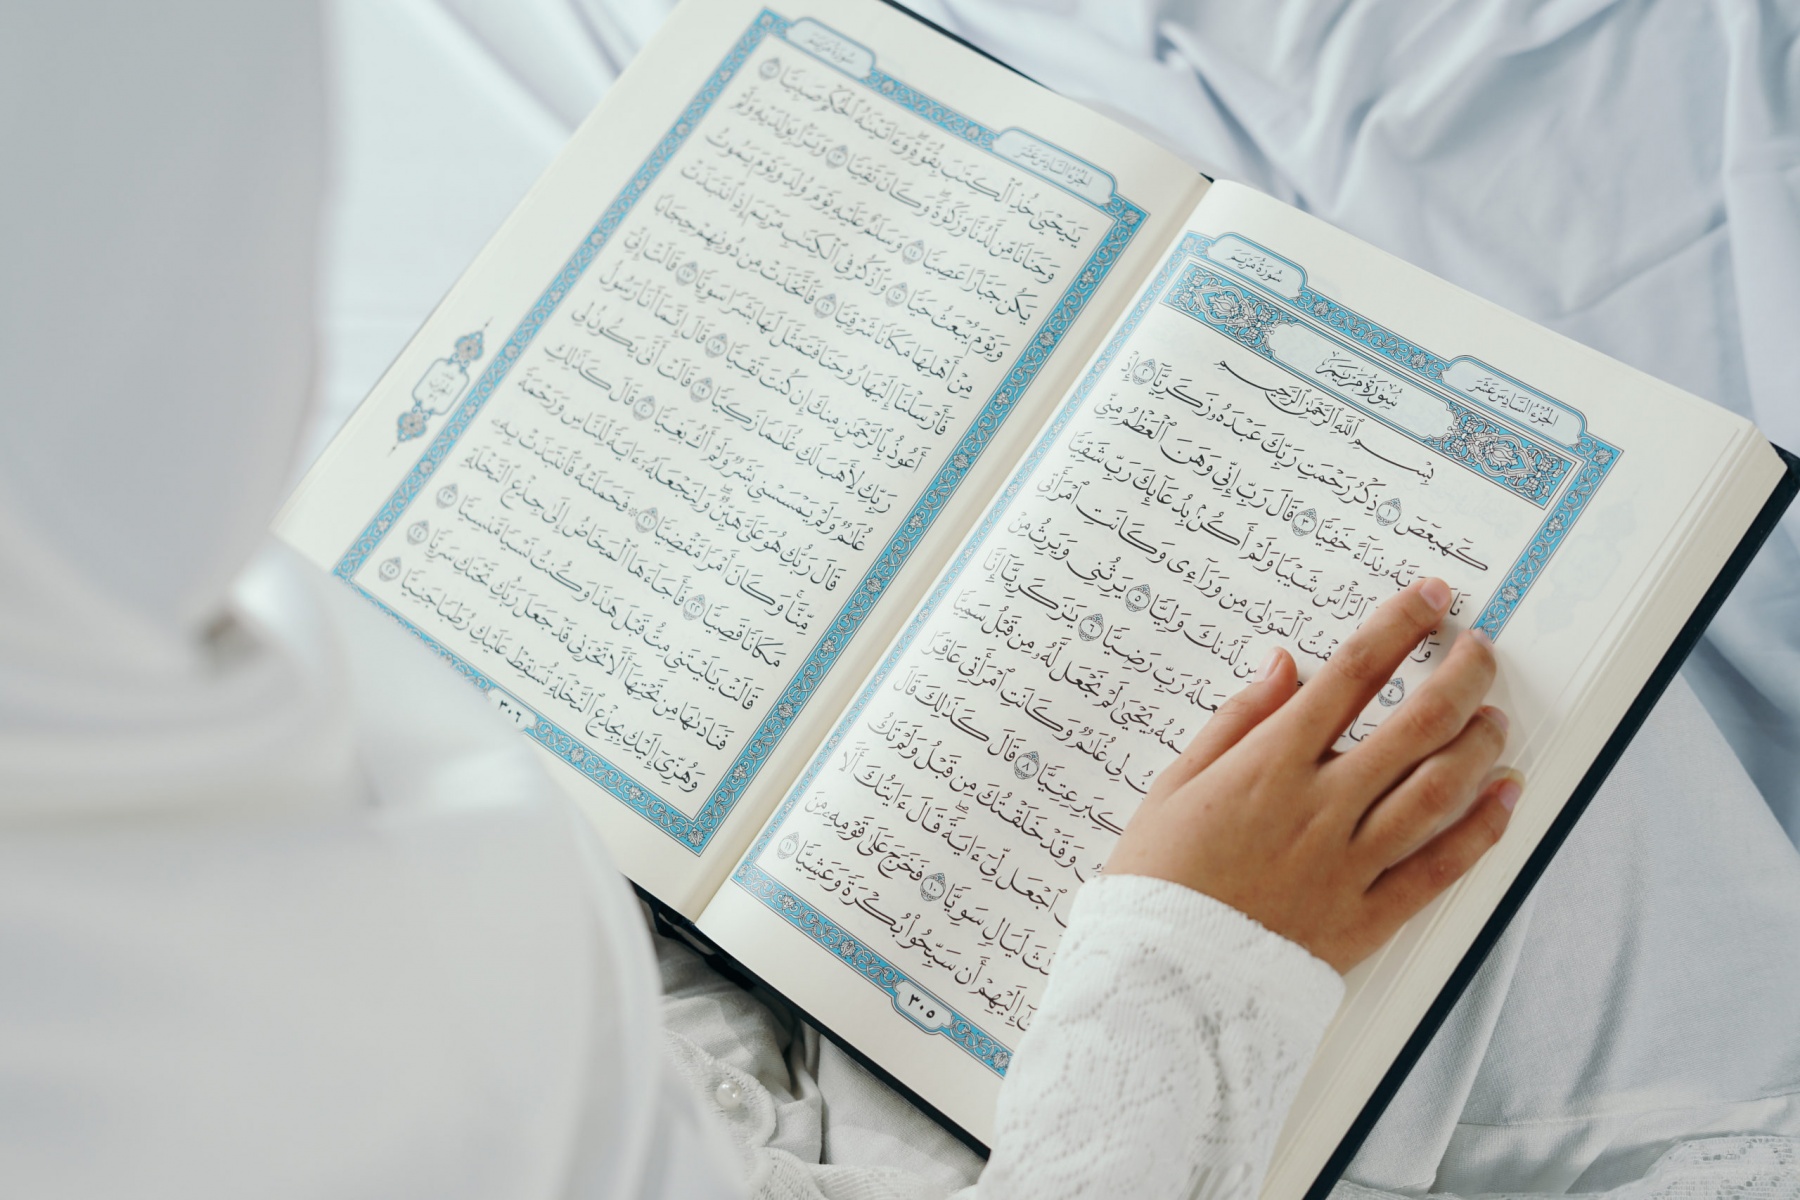 سُورَةُ مَرْيَمَ
الجُزْءُ السَّادِسَ عَشَرَ
سُورَةُ مَرْيَمَ
بِسْمِ ٱللَّهِ ٱلرَّحْمَٰنِ ٱلرَّحِيمِ
كٓهيعٓصٓ ١ ذِكْرُ رَحْمَتِ رَبِّكَ عَبْدَهُۥ زَكَرِيَّآ ٢ إِذْ
رَبَّهُۥ نِدَآءً خَفِيًّا ٣ قَالَ رَبِّ إِنِّى وَهَنَ ٱلْعَظْمُ مِنِّى
ٱلرَّأْسُ شَيْبًا وَلَمْ أَكُنۢ بِدُعَآئِكَ رَبِّ شَقِيًّا
٤ ٱلْمَوَٰلِىَ مِن وَرَآءِى وَكَانَتِ ٱمْرَأَتِى
مِن لَّدُنكَ وَلِيًّا ٥ يَرِثُنِى وَيَرِثُ مِنْ
رَبِّ رَضِيًّا ٦ يَٰزَكَرِيَّآ إِنَّا
يَحْيَىٰ لَمْ نَجْعَل لَّهُۥ مِن قَبْلُ سَمِيًّا
لِى غُلَٰمٌ وَكَانَتِ ٱمْرَأَتِى عَاقِرًا
عِتِيًّا ٨ قَالَ كَذَٰلِكَ قَالَ
وَقَدْ خَلَقْتُكَ مِن قَبْلُ وَلَمْ تَكُ
ٱجْعَل لِّىٓ ءَايَةً قَالَ ءَايَتُكَ أَلَّا
لَيَالٍ سَوِيًّا ١٠ فَخَرَجَ عَلَىٰ قَوْمِهِۦ مِنَ
إِلَيْهِمْ أَن سَبِّحُوا۟ بُكْرَةً وَعَشِيًّا ١١
٣٠٥
سُورَةُ مَرْيَمَ
الجُزْءُ السَّادِسَ عَشَرَ
يَٰيَحْيَىٰ خُذِ ٱلْكِتَٰبَ بِقُوَّةٍ وَءَاتَيْنَٰهُ ٱلْحُكْمَ صَبِيًّا ١٢
وَحَنَانًا مِّن لَّدُنَّا وَزَكَوٰةً وَكَانَ تَقِيًّا ١٣ وَبَرًّۢا بِوَٰلِدَيْهِ وَلَمْ
يَكُن جَبَّارًا عَصِيًّا ١٤ وَسَلَٰمٌ عَلَيْهِ يَوْمَ وُلِدَ وَيَوْمَ يَمُوتُ
وَيَوْمَ يُبْعَثُ حَيًّا ١٥ وَٱذْكُرْ فِى ٱلْكِتَٰبِ مَرْيَمَ إِذِ ٱنتَبَذَتْ
مِنْ أَهْلِهَا مَكَانًا شَرْقِيًّا ١٦ فَٱتَّخَذَتْ مِن دُونِهِمْ حِجَابًا
فَأَرْسَلْنَآ إِلَيْهَا رُوحَنَا فَتَمَثَّلَ لَهَا بَشَرًا سَوِيًّا ١٧ قَالَتْ إِنِّىٓ
أَعُوذُ بِٱلرَّحْمَٰنِ مِنكَ إِن كُنتَ تَقِيًّا ١٨ قَالَ إِنَّمَآ أَنَا۠ رَسُولُ
رَبِّكِ لِأَهَبَ لَكِ غُلَٰمًا زَكِيًّا ١٩ قَالَتْ أَنَّىٰ يَكُونُ لِى
غُلَٰمٌ وَلَمْ يَمْسَسْنِى بَشَرٌ وَلَمْ أَكُ بَغِيًّا ٢٠ قَالَ كَذَٰلِكِ
قَالَ رَبُّكِ هُوَ عَلَىَّ هَيِّنٌ وَلِنَجْعَلَهُۥٓ ءَايَةً لِّلنَّاسِ وَرَحْمَةً
مِّنَّا وَكَانَ أَمْرًا مَّقْضِيًّا ٢١ ۞ فَحَمَلَتْهُ فَٱنتَبَذَتْ بِهِۦ
مَكَانًا قَصِيًّا ٢٢ فَأَجَآءَهَا ٱلْمَخَاضُ إِلَىٰ جِذْعِ ٱلنَّخْلَةِ
قَالَتْ يَٰلَيْتَنِى مِتُّ قَبْلَ هَٰذَا وَكُنتُ نَسْيًا مَّنسِيًّا ٢٣
فَنَادَىٰهَا مِن تَحْتِهَآ أَلَّا تَحْزَنِى قَدْ جَعَلَ رَبُّكِ تَحْتَكِ سَرِيًّا ٢٤
وَهُزِّىٓ إِلَيْكِ بِجِذْعِ ٱلنَّخْلَةِ تُسَٰقِطْ عَلَيْكِ رُطَبًا جَنِيًّا ٢٥
٣٠٦